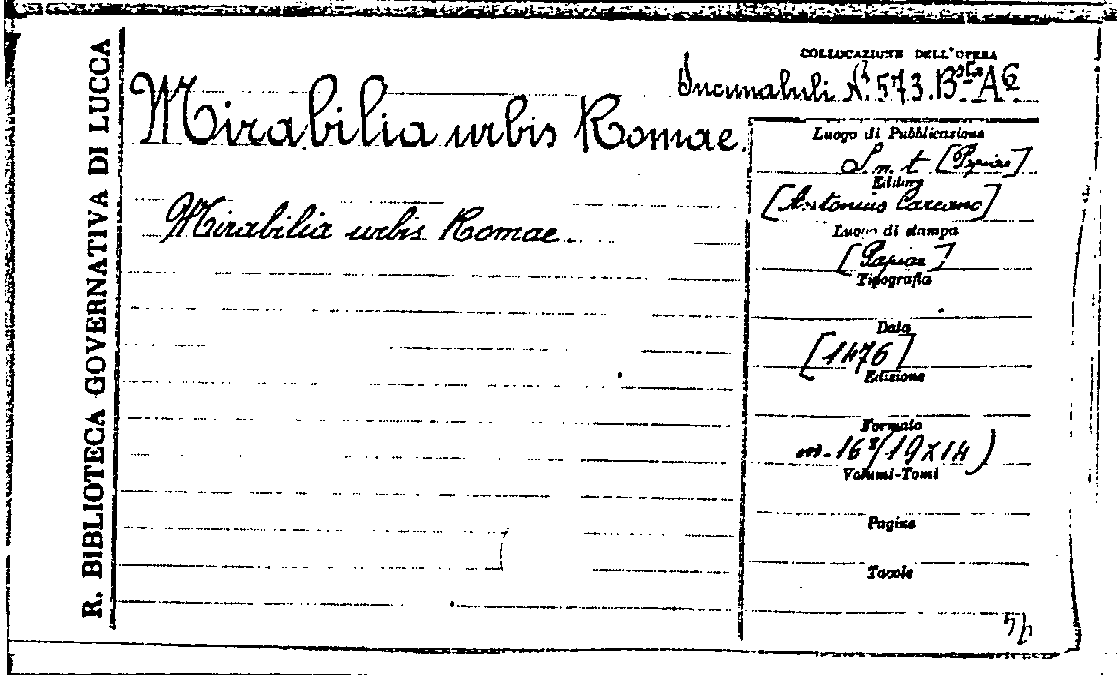 R. BIBLIOTECA GOVERNATIVA DI LUCCA
COLLOCAZIONE DELL'OPERA
Incunabuli N. 573. B.sta A6
Mirabilia urbis Romae.
Mirabilia urbis Romae.
Luogo di Pubblicazione
S. n. t [Papiae]
Editore
[Antonius Carcano]
Luogo di stampa
[Papiae]
Tipografia
Data
[1476]
Edizione
Formato
in-16º (19x14)
Volumi-Tomi
Pagine
Tavole